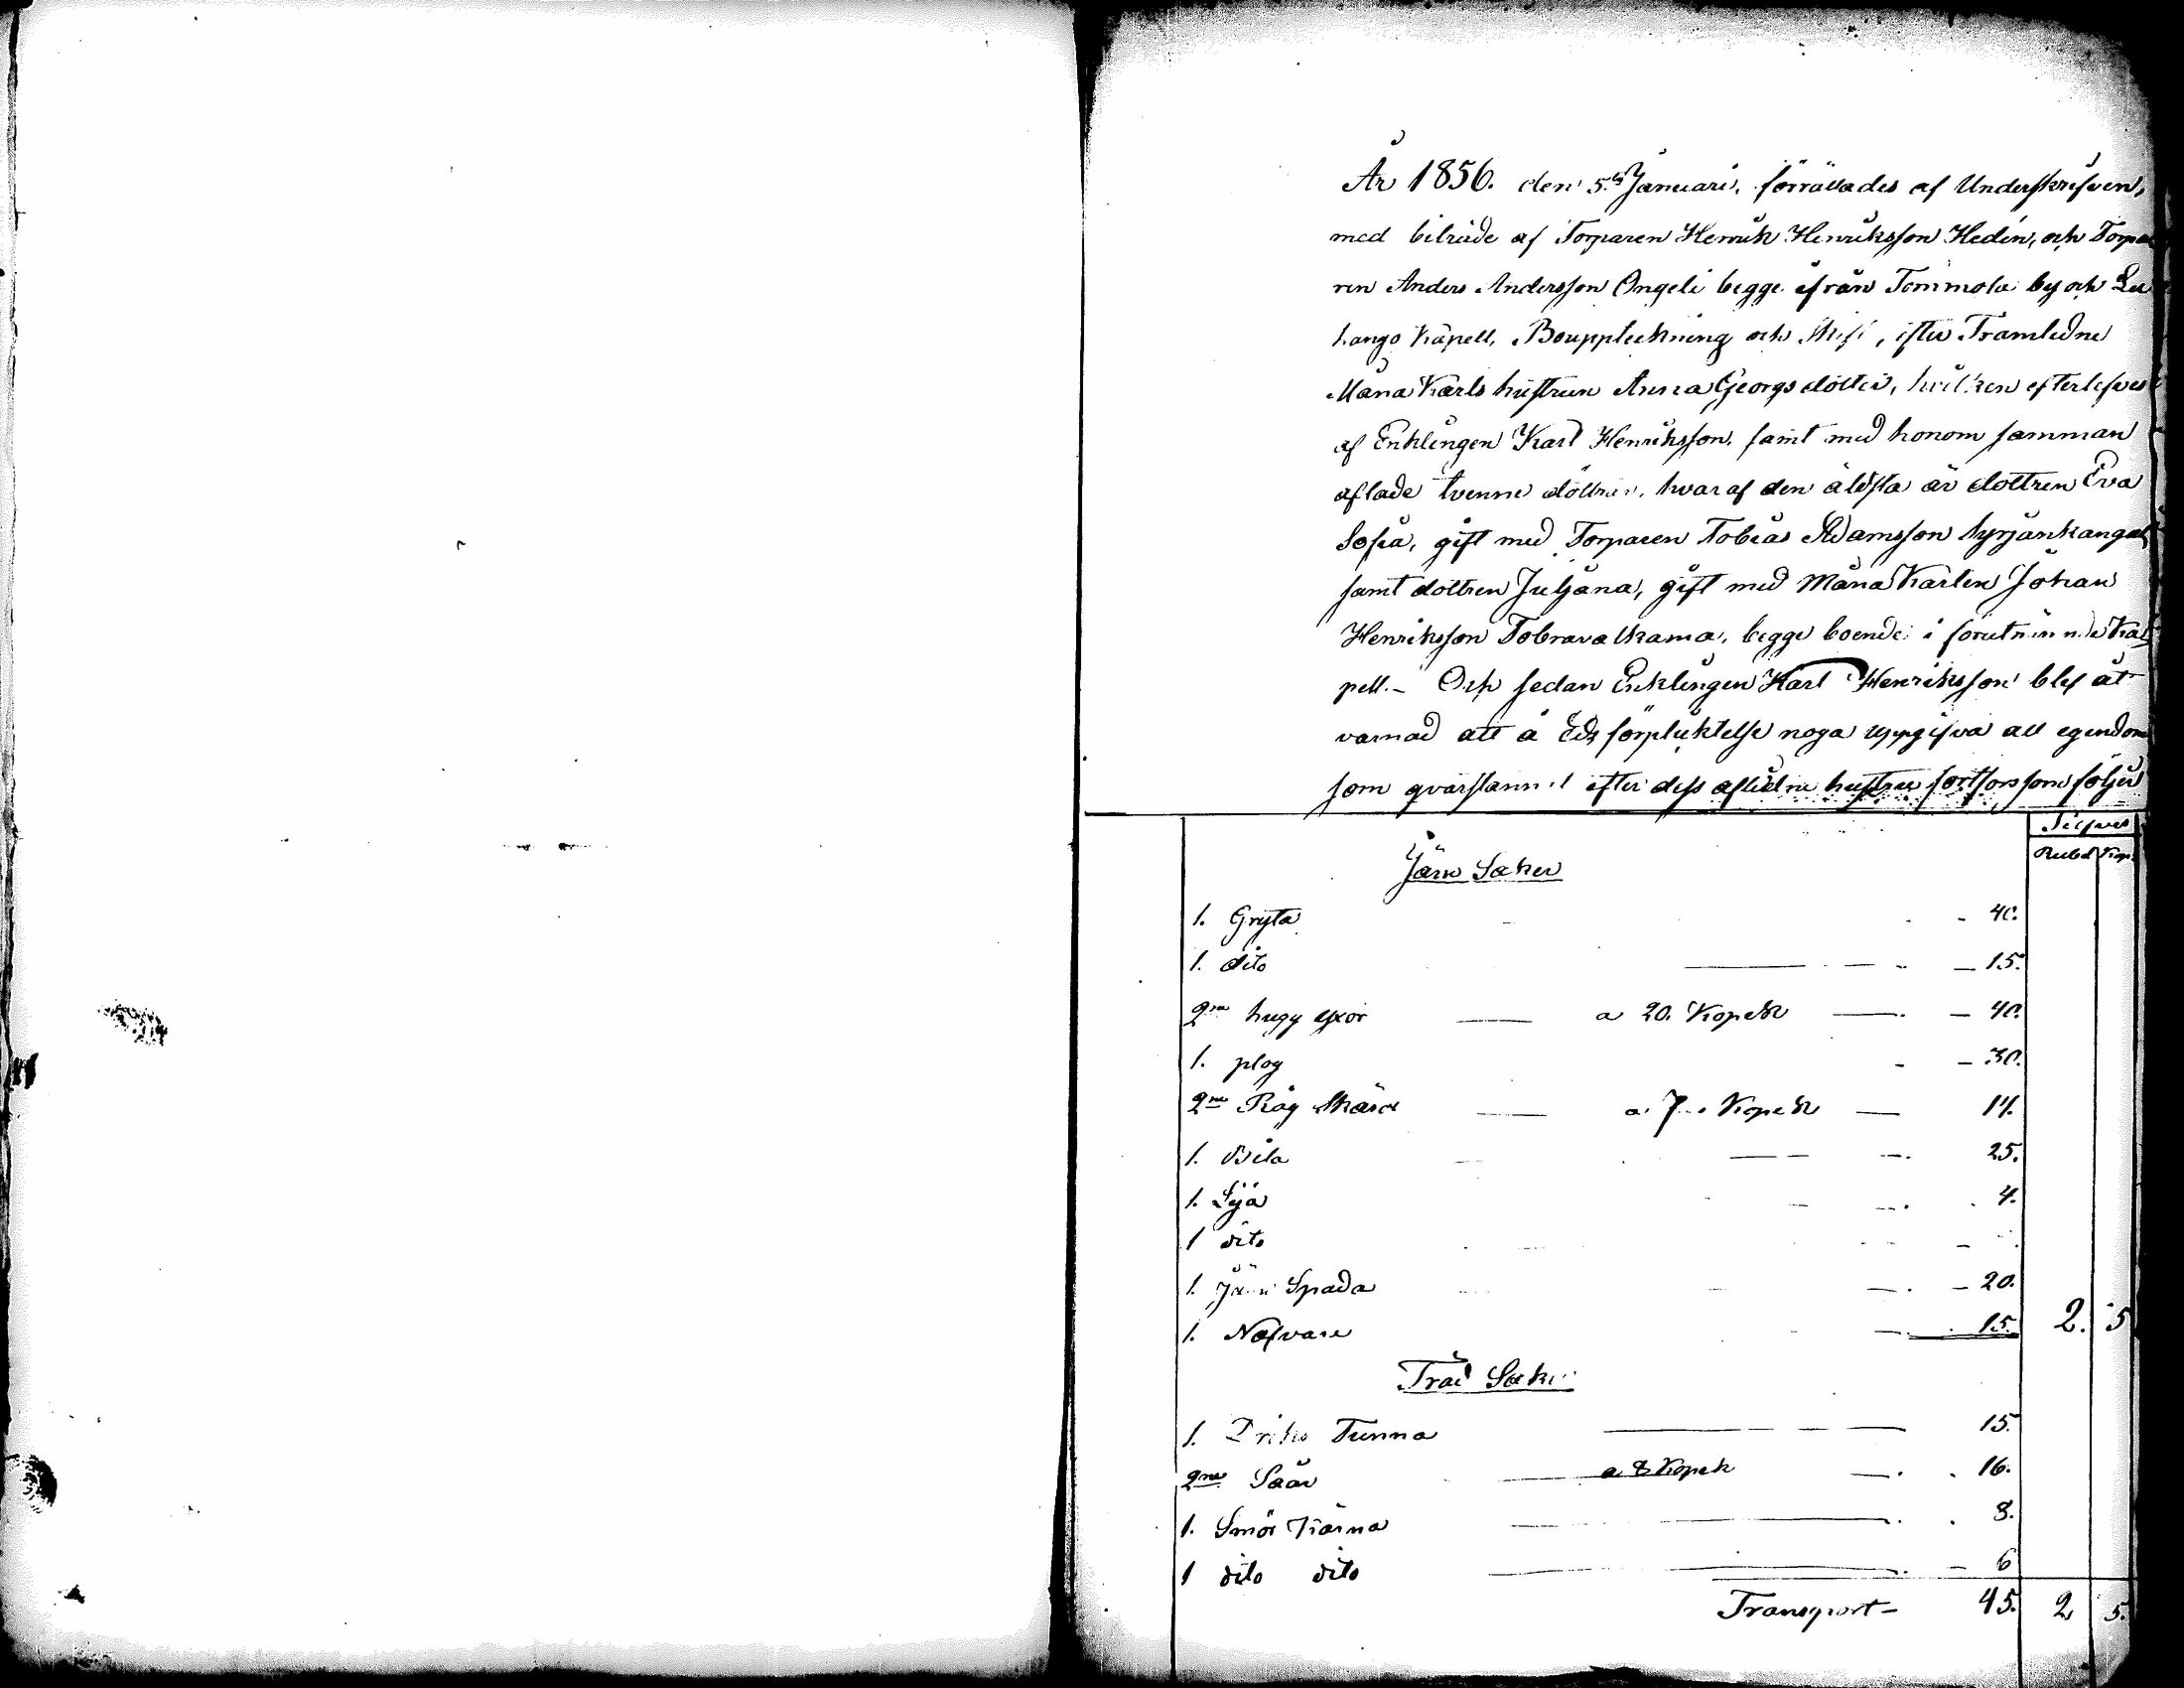 År 1856. den 5.te Januari, förrättades af Underskrifven,
med biträde af Torparen Henrik Henriksson Hedin, och Torpa
ren Anders Andersson Ongeli begge ifrån Tommola by och Lu
hango Kapell, Bouppteckning och Skift, efter Framledne
Måna Karls hustrun Anna Georgsdotter, hvilken efterlefves
af Enklingen Karl Henriksson, samt med honom samman
aflade tvenne döttrar, hvaraf den äldsta är dottren Eva
Sofia, gift med Torparen Tobias Adamsson Syrjänkangas
samt dottren Juljana, gift med Måna Karlen Johan
Henriksson begge boende i förutnämnde Ka
pell.- Och sedan Enklingen Karl Henriksson blef åt
varnad att å Eds förpliktelse noga uppgifva all egendom
som qvarstannat efter dess aflidne hustru som följer
Silfver
Rubel Kop.
Järn Saker
1. Gryta - 40.
1. dito - 15.
2ne hugg yxor a 20. Kopek - 40.
1. plog - 30.
2ne Råg Skäror a 7. Kopek 14.
1. Bila 25.
1. Lija 4.
1 dito
1. Järn Spada - 20.
1. Nafvare 15. 2. 5
Träd Saker
1. Dricks Tunna 15.
2ne Såar a 8 Kopek 16.
1. Smör Kärna 8.
1 dito dito - 6
Transport - 45. 2 5.